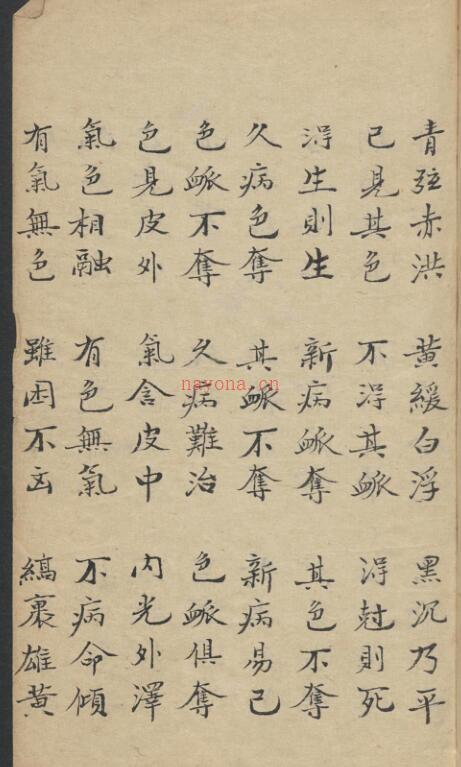 青弦赤洪 黃緩白浮 黑沉乃平
已見其色 不淂其衇 淂尅則死
淂生則生 新病衇奪 其色不奪
久病色奪 其衇不奪 新病易已
色衇不奪 久病難治 色衇俱奪
色見皮外 氣含皮中 內光外澤
氣色相融 有色無氣 不病命傾
有氣無色 雖困不凶 縞裹雄黃
nayona.cn